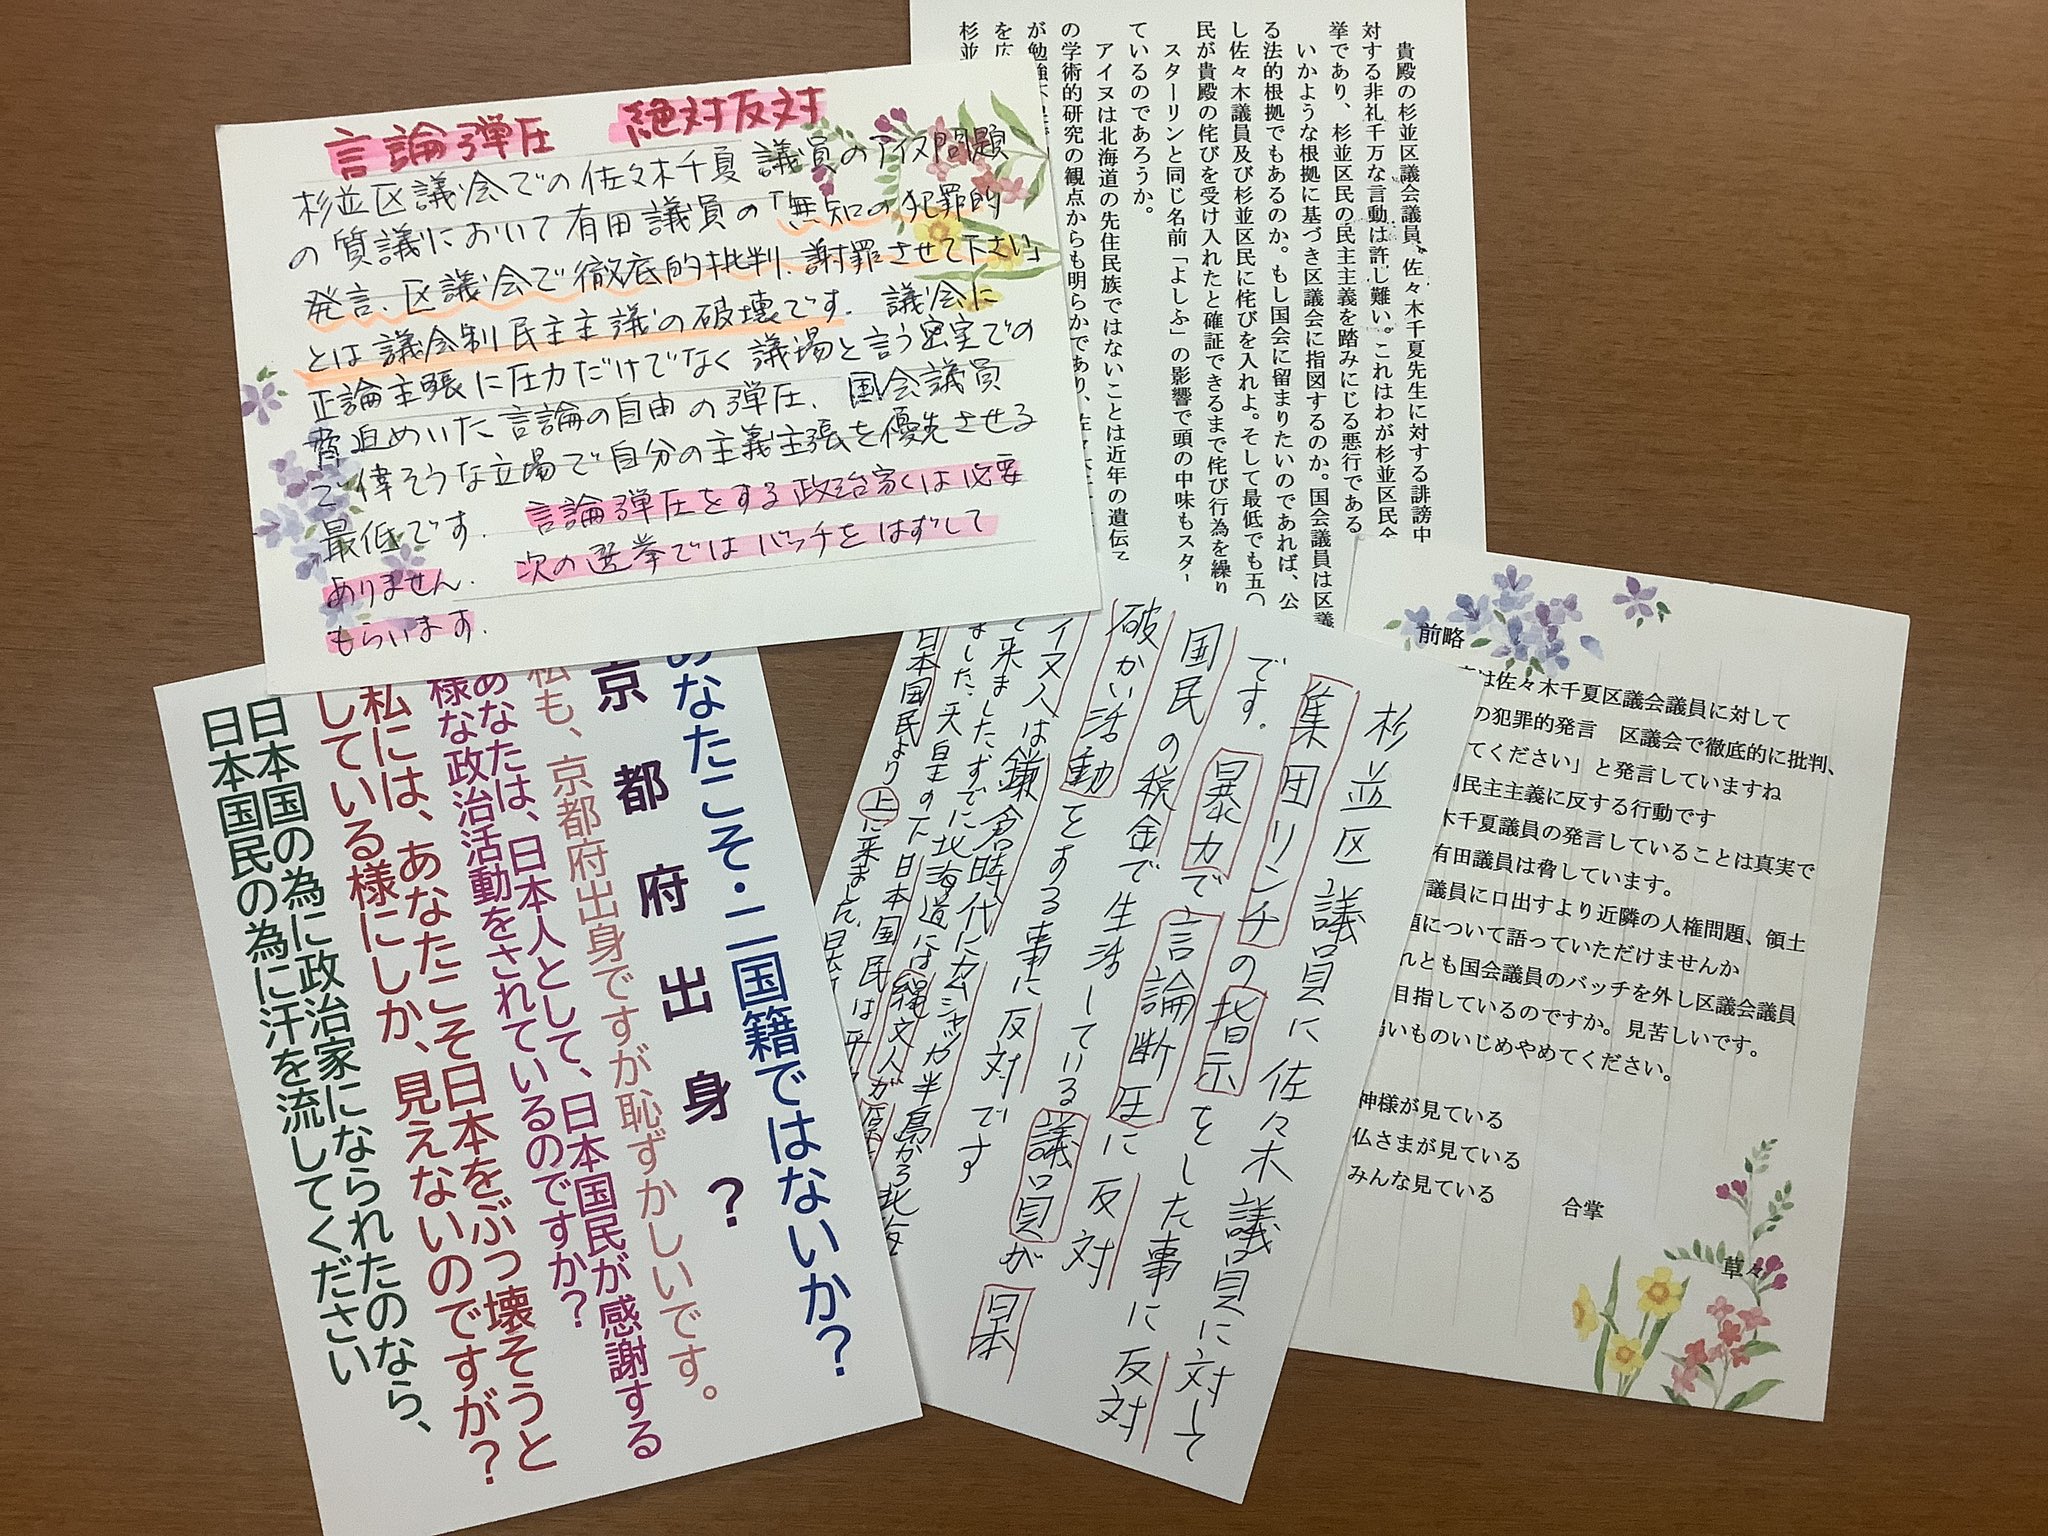 言論弾圧 絶対反対
杉並区議会での佐々木千夏議員のアイヌ問題
の質議において有田議員の「無知の犯罪的
発言、区議会で徹底的批判、謝罪させて下さい」
とは議会制民主主議の破壊です. 議会に
正論主張に圧力だけでなく議場と言う密室での
脅迫めいた言論の自由の弾圧、国会議員
で偉そうな立場で自分の主義主張を優先させる
最低です. 言論弾圧をする政治家くは必要
ありません. 次の選挙ではバッチをはずして
もらいます.
貴殿の杉並区議会議員、佐々木千夏先生に対する誹謗中
対する非礼千万な言動は許し難い。これはわが杉並区民全
挙であり、杉並区民の民主主義を踏みにじる悪行である
いかような根拠に基づき区議会に指図するのか。国会議員は区議
る法的根拠でもあるのか。もし国会に留まりたいのであれば、公
し佐々木議員及び杉並区民に侘びを入れよ。そして最低でも五〇
民が貴殿の侘びを受け入れたと確証できるまで侘び行為を繰り
スターリンと同じ名前「よしふ」の影響で頭の中味もスター
ているのであろうか。
アイヌは北海道の先住民族ではないことは近年の遺伝子
の学術的研究の観点からも明らかであり、
が勉強不足で
を広
杉並
前略
は佐々木千夏区議会議員に対して
の犯罪的発言 区議会で徹底的に批判、
てください」と発言していますね
制民主主義に反する行動です
木千夏議員の発言していることは真実で
有田議員は脅しています。
議員に口出すより近隣の人権問題、領土
題について語っていただけませんか
れとも国会議員のバッチを外し区議会議員
目指しているのですか。見苦しいです。
弱いものいじめやめてください。
神様が見ている
仏さまが見ている
みんな見ている
合掌
草々
杉並区議員に佐々木議員に対して
集団リンチの指示をした事に反対
です. 暴力で言論断圧に反対
国民の税金で生活している議員が日本
破かい活動をする事に反対です
イヌ人は鎌倉時代にカムシャッカ半島から北
て来ましたすでに北海道には縄文人が
ました. 天皇の下日本国民は平
日本国民より上に来ました.
あなたこそ・二国籍ではないか?
京都府出身?
私も、京都府出身ですが恥ずかしいです。
あなたは、日本人として、日本国民が感謝する
様な政治活動をされているのですか?
私には、あなたこそ日本をぶっ壊そうと
している様にしか、見えないのですが?
日本国の為に政治家になられたのなら、
日本国民の為に汗を流してください